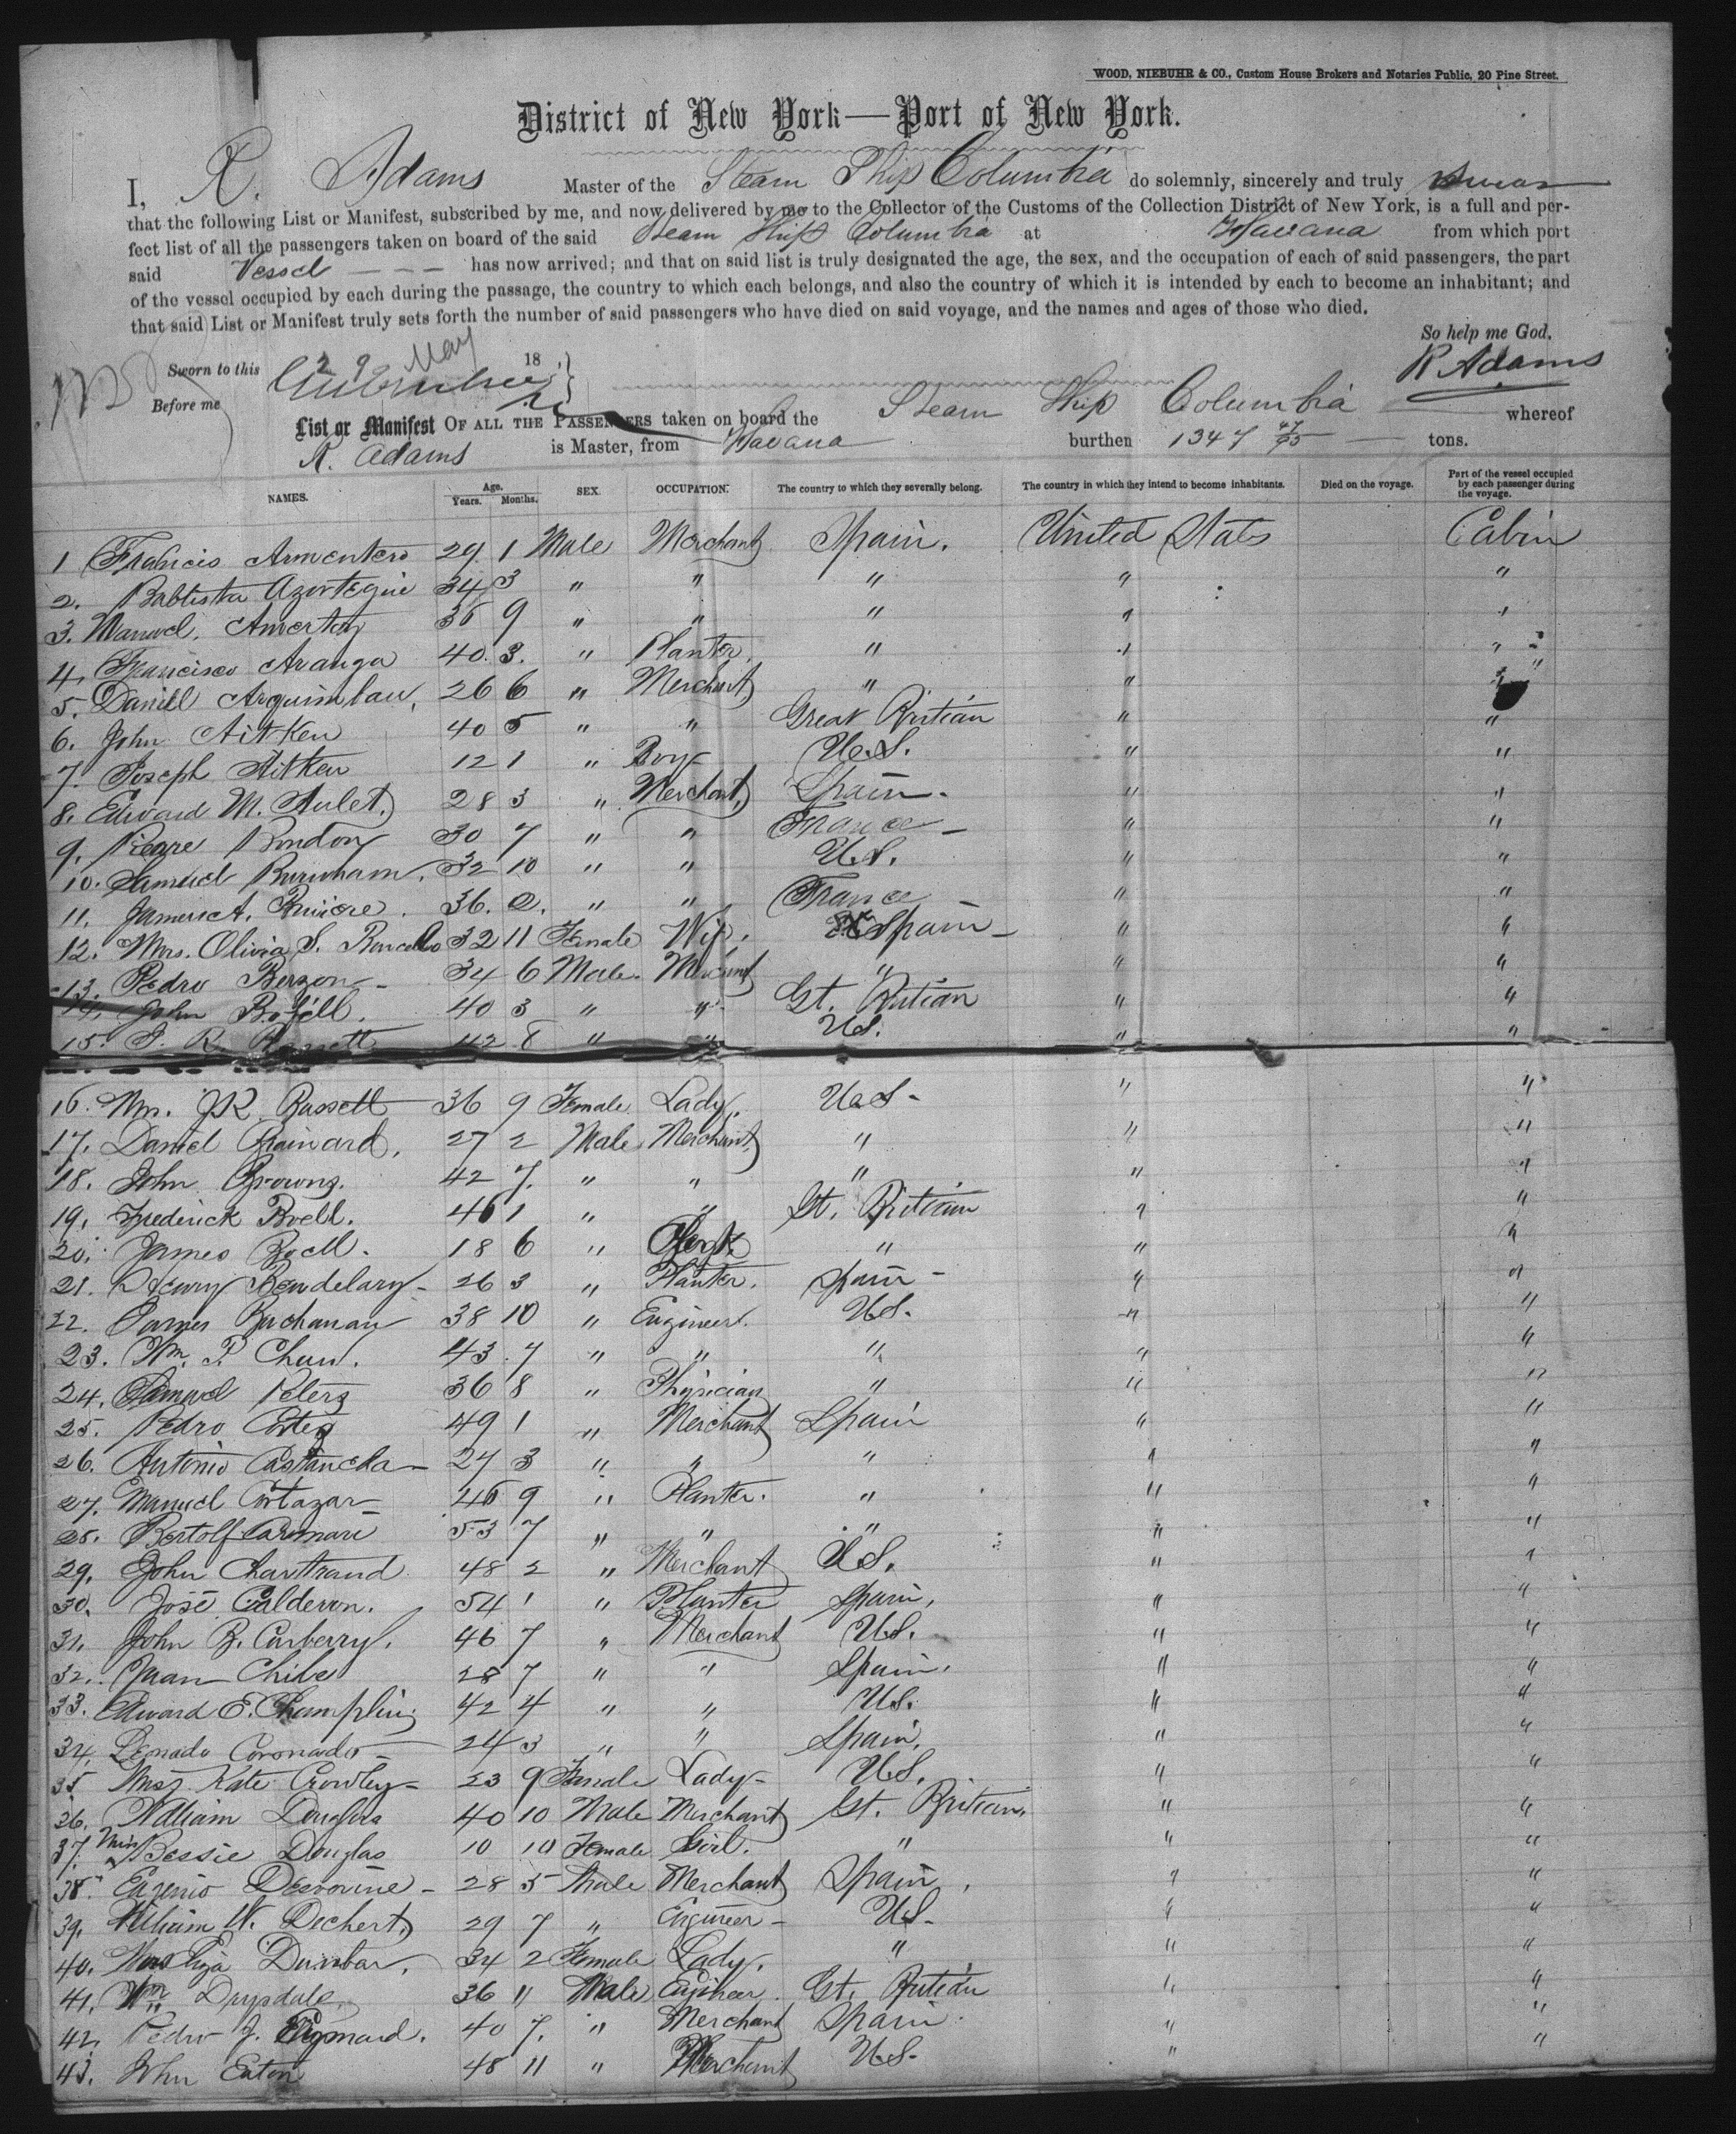 WOOD, NIEBUHR & CO., Custom House Brokers and Notaries Public, 20 Pine Street.
District of New York—Port of New York.
I, R. Adams Master of the Steam Ship Columbia do solemnly, sincerely and truly swear
that the following List or Manifest, subscribed by me, and now delivered by me to the Collector of the Customs of the Collection District of New York, is a full and per-
fect list of all the passengers taken on board of the said Steam Ship Columbia at Havana from which port
said Vessel has now arrived; and that on said list is truly designated the age, the sex, and the occupation of each of said passengers, the part
of the vessel occupied by each during the passage, the country to which each belongs, and also the country of which it is intended by each to become an inhabitant; and
that said List or Manifest truly sets forth the number of said passengers who have died on said voyage, and the names and ages of those who died.
So help me God.
Sworn to this 29 May 18 R Adams
Before me
List or Manifest OF ALL THE PASSENGERS taken on board the Steam Ship Columbia whereof
R. Adams is Master, from Havana burthen 1347 tons.
NAMES. Age. Years. Months. SEX. OCCUPATION. The country to which they severally belong. The country in which they intend to become inhabitants. Died on the voyage. Part of the vessel occupied by each passenger during the voyage.
1 Francis Armentero 29 1 Male Merchant Spain. United States Cabin
2. Babtista Azortegue 34 3 " " " " "
3. Manuel. 36 9 " " " " "
4. Francisco Aranga 40. 3. " Planter. " " "
5. Daniell Arguimbau, 26 6 " Merchant " " "
6. John Aitken 40 5 " " Great Britian " "
7. Joseph Aitken 12 1 " Boy U.S. " "
8. Edward M. Aulet. 28 3 " Merchant Spain. " "
9. Rondon 30 7 " " France " "
10. Samuel Burnham. 32 10 " " U.S. " "
11. 36. 2. " " France " "
12. Mrs. Olivia S. 32 11 Female Wife. Spain " "
13. Pedro Berzon 34 6 Male. Merchant " " "
14. John Bofill. 40 3 " " Gt. Britian " "
15. J. R. Bassett 42 8 " " US. " "
16. Mrs. J R Bassett 36 9 Female Lady. U.S. " "
17. Daniel Brainard. 27 2 Male Merchant " " "
18. John Browns. 42 7. " " " " "
19. Frederick Boell. 46 1 " " Gt. Britian " "
20. James Boell. 18 6 " Clerk " " "
21. Henry Bendelary 26 3 " Planter. Spain " "
22. James Buchanan 38 10 " Engineer. US. " "
23. Wm. P. Chew. 43 7 " " " " "
24. Samuel Peters 36 8 " Physician " " "
25. Pedro Cortez 49 1 " Merchant Spain " "
26. Antonio Castancha 27 3 " " " " "
27. Manuel Cortazar 46 9 " Planter. " " "
28. Bertolf 53 7 " " " " "
29. John Chartrand 48 2 " Merchant U.S. " "
30. José Calderon. 54 1 " Planter Spain. " "
31. John B. Carberry. 46 7 " Merchant US. " "
32. Juan Chibe 28 7 " " Spain. " "
33. Edward E. Champlin 42 4 " " US. " "
34. Coronado 24 3 " " Spain. " "
35 Miss Kate Crowley 23 9 Female Lady US. " "
36. William Douglas 40 10 Male Merchant Gt. Britian. " "
37. Miss Bessie Douglas 10 10 Female Girl. " " "
38. Eugenio Desvovine 28 5 Male Merchant Spain " "
39. William W. Dechert 29 7 " Engineer US. " "
40. Mrs Eliza Dunbar. 34 2 Female Lady. " " "
41. Wm Drysdale 36 11 Male Engineer. Gt. Britian " "
42. Pedro J. 40 7. " Merchant Spain. " "
43. John Eaton 48 11 " Merchant US. " "